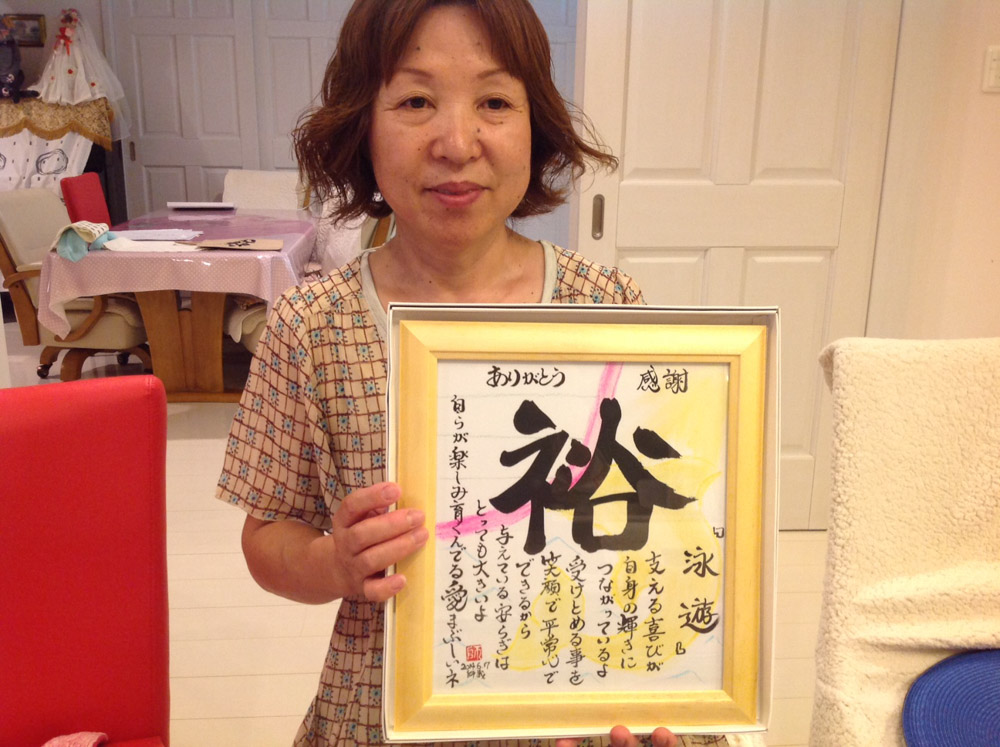 感謝
ありがとう
裕
『泳遊』
支える喜びが
自身の輝きに
つながっているよ
受けとめる事を
笑顔で平常心で
できるから
与えている安らぎは
とっても大きいよ
自らが楽しみ育くんでる愛まぶしいネ